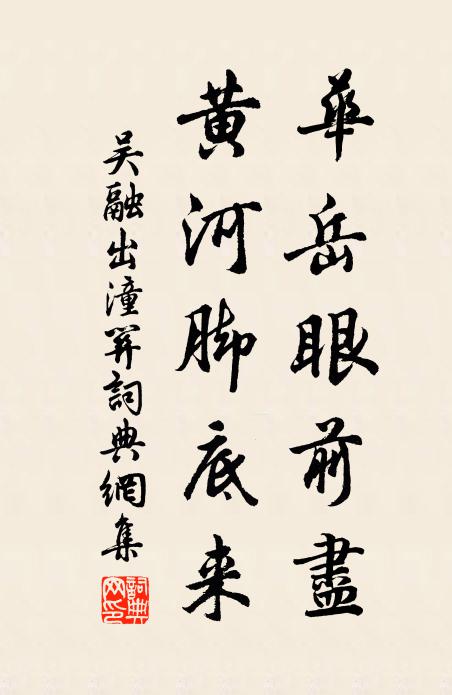 華岳眼前盡
黄河脚底来
吴融出潼関詞典網集
詞典網印